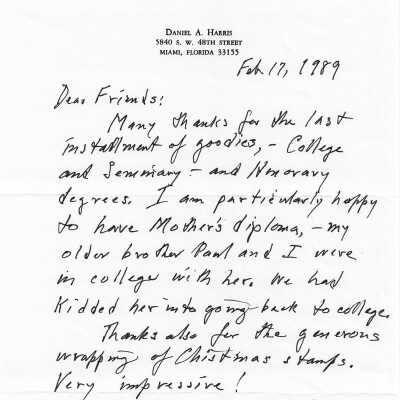 DANIEL A. HARRIS
5840 S. W. 48TH STREET
MIAMI, FLORIDA 33155
Feb. 17, 1989
Dear Friends:
Many thanks for the last
installment of goodies, - College
and Seminary - and Honorary
degrees. I am particularly happy
to have Mother's diploma, - my
older brother Paul and I were
in college with her. We had
Kidded her into going back to college.
Thanks also for the generous
wrapping of Christmas stamps.
Very impressive!